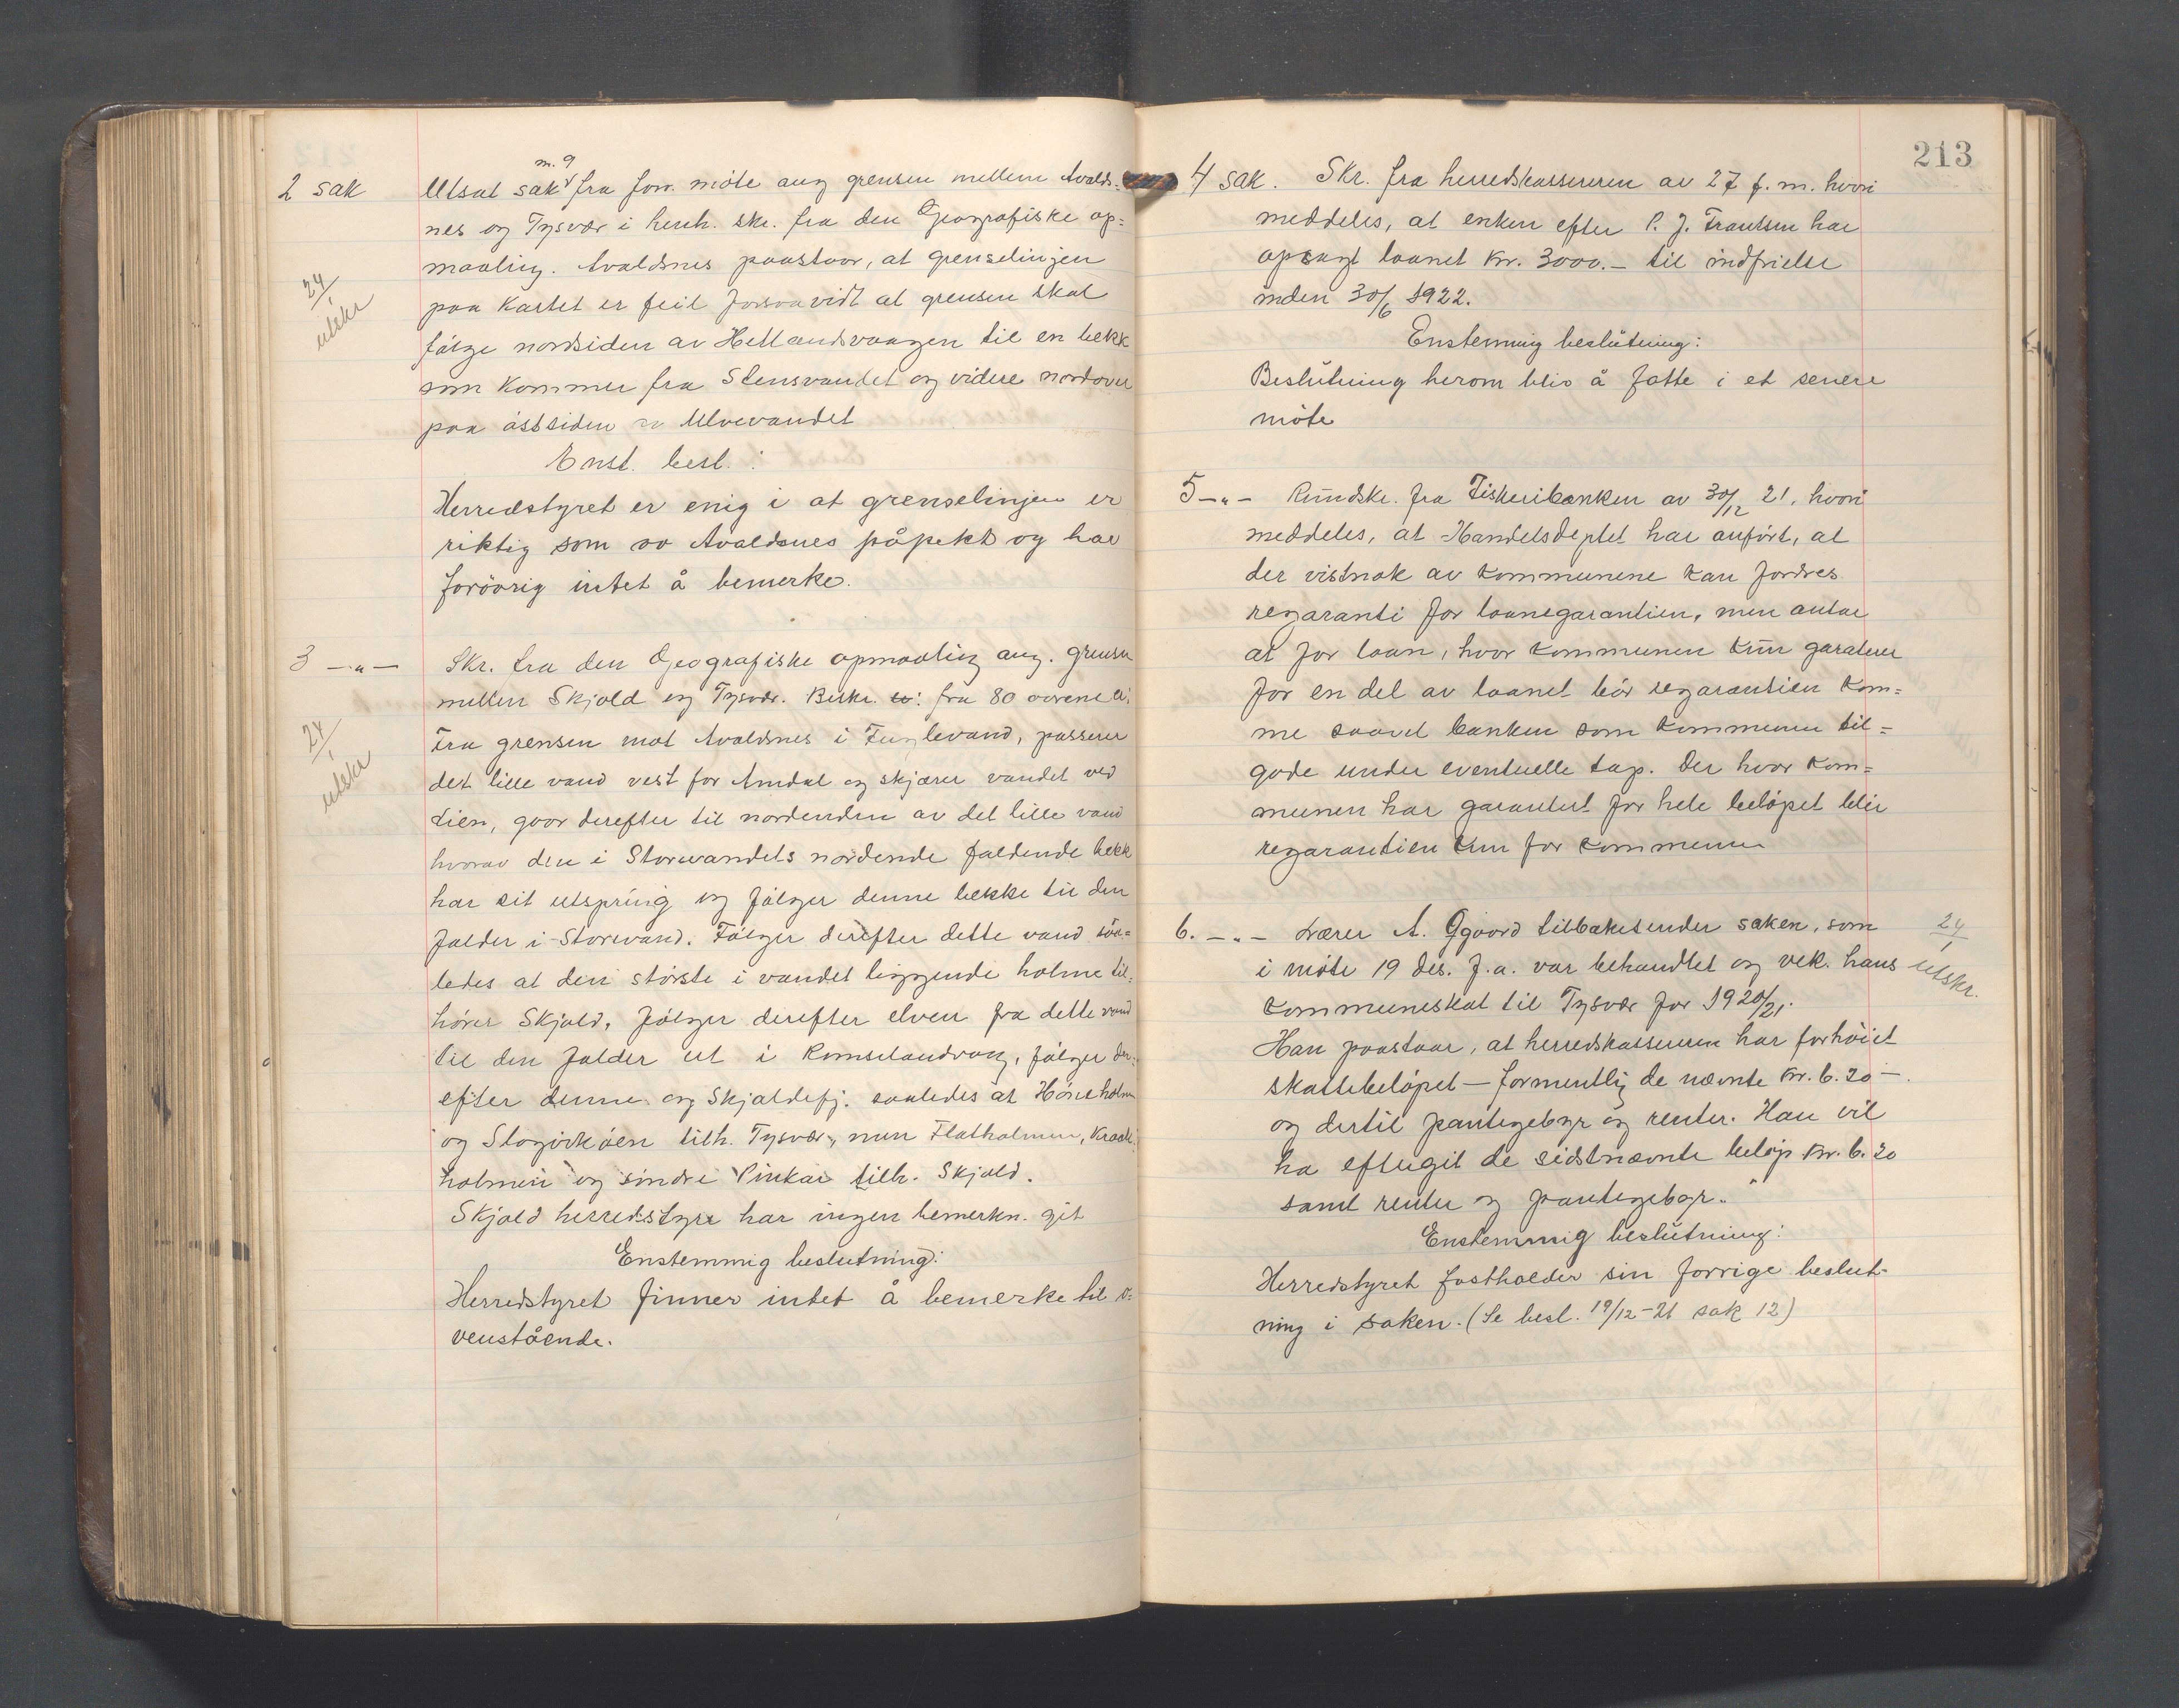 2 sak
m. 9
Utsat sak fra forr. möte ang grensen mellem Avalds-
nes og Tysvær i henh. skr. fra den Geografiske op=
maaling. Avaldsnes paastaar, at grenselinjen
24/1 utskr
paa kartet er feil forsaavidt at grensen skal
fölge nordsiden av Hellandsvaagen til en bekk
som kommer fra Stensvandet og videre nordover
paa östsiden av Ulvevandet
Enst. besl.:
Herredstyret er enig i at grenselinjen er
riktig som av Avaldsnes påpekt og har
forövrig intet å bemerke.
3 -"-
Skr. fra den Geografiske opmaaling ang. grensen
mellem Skjold og Tysvær. Beskr. fra 80
Fra grensen mot Avaldsnes i Fuglevand, passerer
24/1 utskr
det lille vand vest for Amdal og skjærer vandet ved
Lien, gaar derefter til nordenden av det lille vand
hvorav den i Storevandets nordende faldende bekk
har sit utspring og fölger denne bekke til den
falder i Storevand. Fölger derefter dette vand saa=
ledes at den störste i vandet liggende holme til=
hörer Skjold, fölger derefter elven fra dette vand
til den falder ut i Romselandvaag, fölger der=
efter denne og Skjoldefj. saaledes at Höneholm
og tilh. Tysvær, men Flatholmen, Kraak=
holmen og sindre Vinkai tilh. Skjold.
Skjold herredsstyre har ingen bemerkn. git
Enstemmig beslutning:
Herredstyret finner intet å bemerke til o=
venstående.
213
4 sak. Skr. fra herredskassereren av 27 f.m. hvori
meddeles, at enken efter P. J. Frantsen har
opsagt laanet kr. 3000.- til indfrielse
inden 30/6 1922.
Enstemmig beslutning:
Beslutning herom blir å fatte i et senere
möte
5 -"- Rundskr. fra Fiskeribanken av 30/12 21, hvori
meddeles, at Handelsdeptet har anfört, at
der vistnok av kommunene kan fordres
regaranti for laanegarantien, men antar
at for laan, hvor kommunen kun garaterer
for en del av laanet bör regarantien kom=
me saavel banken som kommunen til=
gode under eventuelle tap. Der hvor kom=
munen har garantert for hele belöpet blir
regarantien kun for kommunen
6. -"- Lærer A. Qgaard tilbakesender saken, som
24/1 utskr.
i möte 19 des. f.a. var behandlet og vek. hans
kommuneskat til Tysvær for 1920/21.
Han paastaar, at herredskassereren har forhöiet
skattebelöpet - formentlig de nævnte kr. 6.20 -
og dertil pantegebyr og renter. Han vil
ha eftergit de sidstnævnte belöp kr. 6.20
samt renter og pantegebyr."
Enstemmig beslutning:
Herredstyret fastholder sin forrige beslut-
ning i saken. (Se besl. 19/12-21 sak 12)